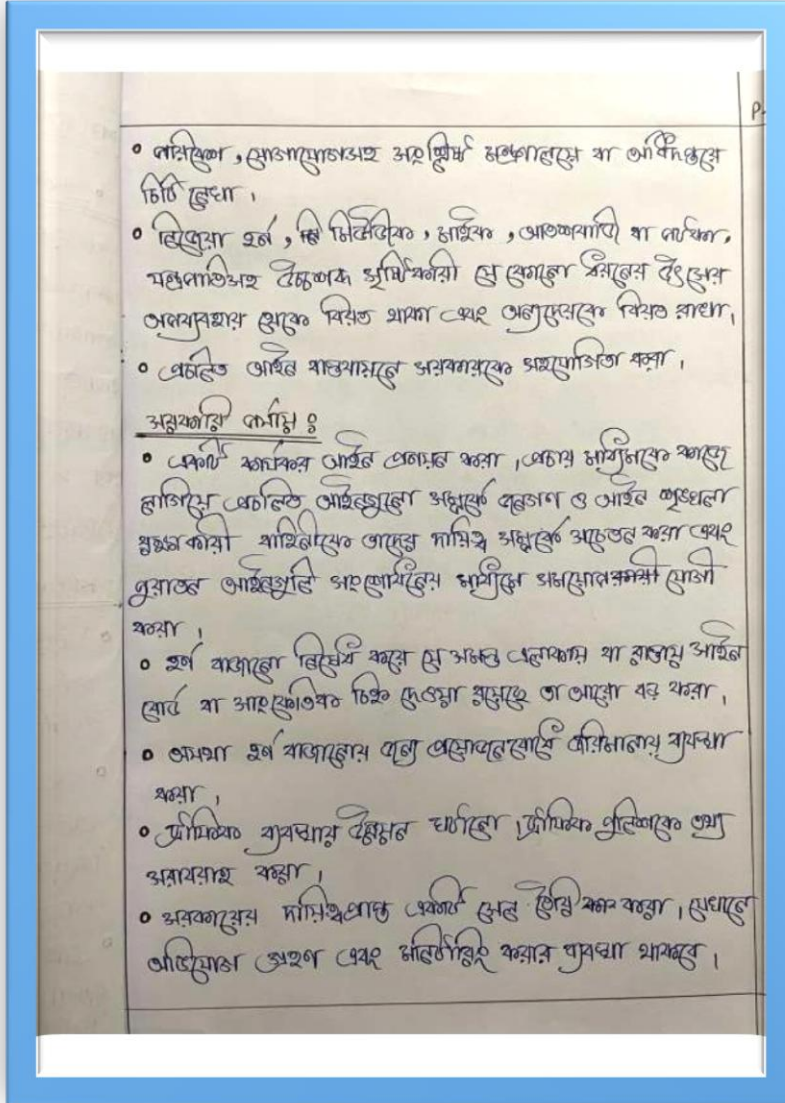 P.
• পরিবেশ, যোগাযোগসহ সংশ্লিষ্ট মন্ত্রণালয়ে বা অধিদপ্তরে
চিঠি লেখা।
• নিজেরা হর্ন, মাইক, আতশবাজি বা পটকা,
যন্ত্রপাতিসহ উচ্চশব্দ সৃষ্টিকারী যে কোনো ধরনের উৎসের
অপব্যবহার থেকে বিরত থাকা এবং অন্যদেরকে বিরত রাখা,
• প্রচলিত আইন বাস্তবায়নে সরকারকে সহযোগিতা করা।
সরকারি পর্যায় :
• একটি কার্যকর আইন প্রনয়ন করা, প্রচার মাধ্যমকে কাজে
লাগিয়ে প্রচলিত আইনগুলো সম্পর্কে জনগণ ও আইন শৃঙ্খলা
বাহিনীকে তাদের দায়িত্ব সম্পর্কে সচেতন করা এবং
পুরাতন আইনগুলি সংশোধনের মাধ্যমে
করা।
• হর্ন বাজানো নিষেধ করে যে সমস্ত এলাকায় বা রাস্তায় সাইন
বোর্ড বা সাংকেতিক চিহ্ন দেওয়া রয়েছে তা আরো বড় করা,
• অযথা হর্ন বাজানোর জন্য প্রয়োজনবোধে জরিমানার ব্যবস্থা
করা,
• ট্রাফিক ব্যবস্থার উন্নয়ন ঘটানো, ট্রাফিক পুলিশকে তথ্য
সরাবরাহ করা,
• সরকারের দায়িত্বপ্রাপ্ত একটি সেল তৈরি করা, যেখানে
অভিযোগ গ্রহণ এবং মনিটরিং করার ব্যবস্থা থাকবে।